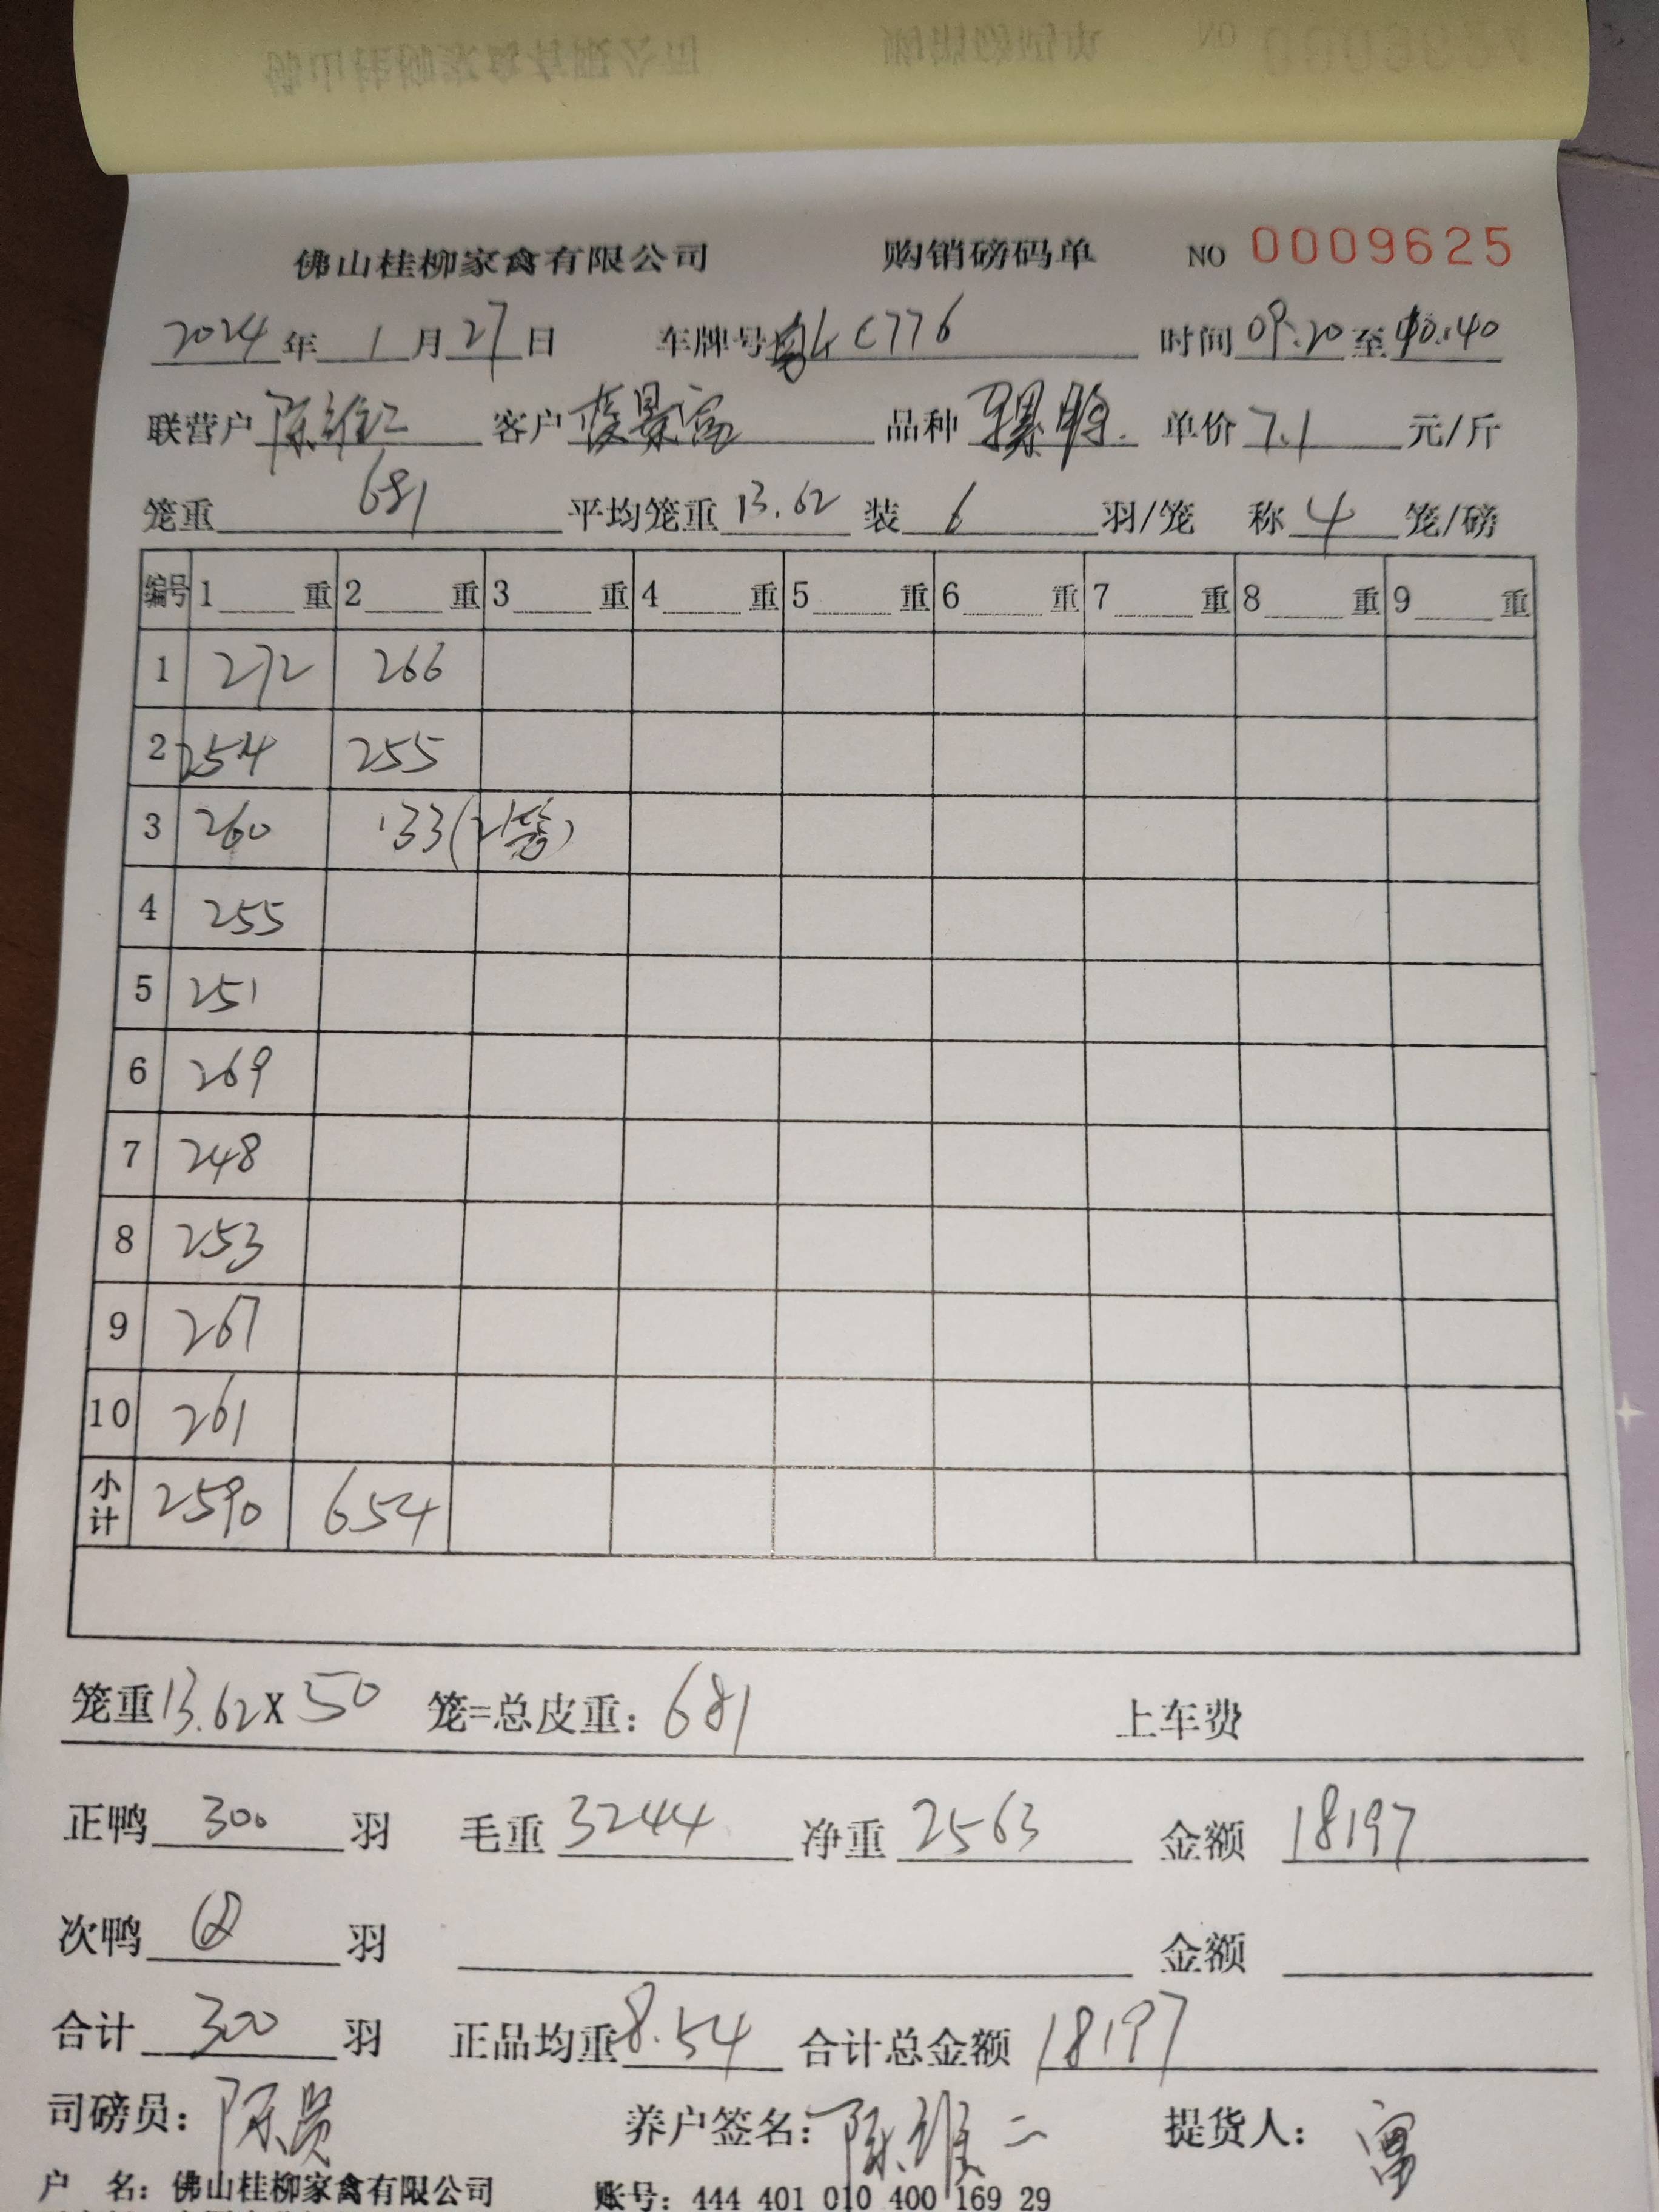 佛山桂柳家禽有限公司 购销磅码单 NO 0009625
2024年1月27日 车牌号 C776 时间 09:20 至 10:40
联营户 陈维二 客户 景富 品种 骡鸭 单价 7.1 元/斤
笼重 681 平均笼重 13.62 装 6 羽/笼 称 4 笼/磅
编号 1 重 2 重 3 重 4 重 5 重 6 重 7 重 8 重 9 重
1 272 266
2 254 255
3 260 133(2笼)
4 255
5 251
6 269
7 248
8 253
9 267
10 261
小计 2590 654
笼重 13.62 X 50 笼=总皮重: 681 上车费
正鸭 300 羽 毛重 3244 净重 2563 金额 18197
次鸭 羽 金额
合计 300 羽 正品均重 8.54 合计总金额 18197
司磅员: 陈 养户签名: 陈维二 提货人: 富
户 名: 佛山桂柳家禽有限公司 账号: 444 401 010 400 169 29